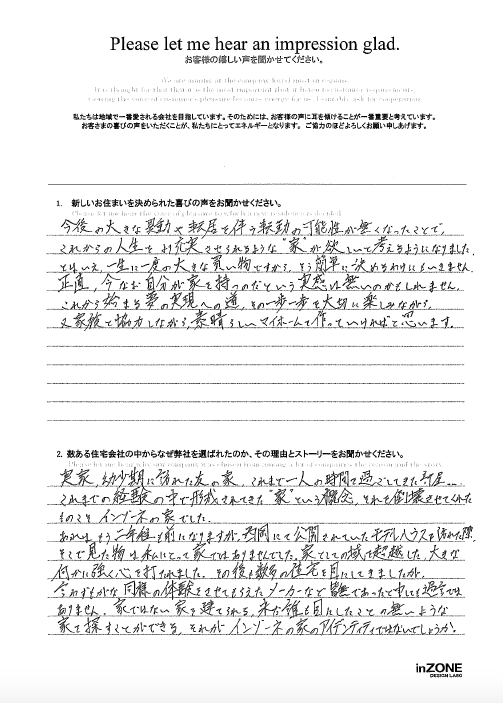 Please let me hear an impression glad.
お客様の嬉しい声を聞かせてください。
We are aiming at the company loved most in region.
It is thought for that that it is the most important that it listen to customer requirements.
私たちは地域で一番愛される会社を目指しています。そのためには、お客様の声に耳を傾けることが一番重要と考えています。
お客さまの喜びの声をいただくことが、私たちにとってエネルギーとなります。 ご協力のほどよろしくお願い申しあげます。
1. 新しいお住まいを決められた喜びの声をお聞かせください。
今後の大きな異動や転居を伴う転勤の可能性が無くなったことで、
これからの人生をより充実させられるような"家"が欲しいと考えるようになりました。
とはいえ、一生に一度の大きな買い物ですから、そう簡単に決めるわけにもいきません。
正直、今なお自分が家を持つのだという実感は無いのかもしれません。
これから始まる夢の実現への道、その一歩一歩を大切に楽しみながら、
又家族で協力しながら、素晴らしいマイホームを作っていければと思います。
2. 数ある住宅会社の中からなぜ弊社を選ばれたのか、その理由とストーリーをお聞かせください。
実家、幼少期に訪れた友の家、これまで一人の時間を過ごしてきた部屋…
これまでの経験の中で形成されてきた"家"という概念、それを倒壊させてくれた
そのこそ インゾーネの家でした。
あれはもう二年程も前になりますが、 公開されていたモデルハウスを訪れた際、
そこで見た物は私にとって家ではありませんでした。家としての域を超越した、大きな
何かに強く心を打たれました。その後も数多の住宅を目にしてきましたが、
今わずかな同様の体験をさせてもらえたメーカーなど皆無であったと申しても過言では
ありません。家ではない家を建てられる、未だ誰も目にしたことの無いような
家を探すことができる、それが インゾーネの家のアイデンティティではないでしょうか。
inZONE
DESIGN LABO